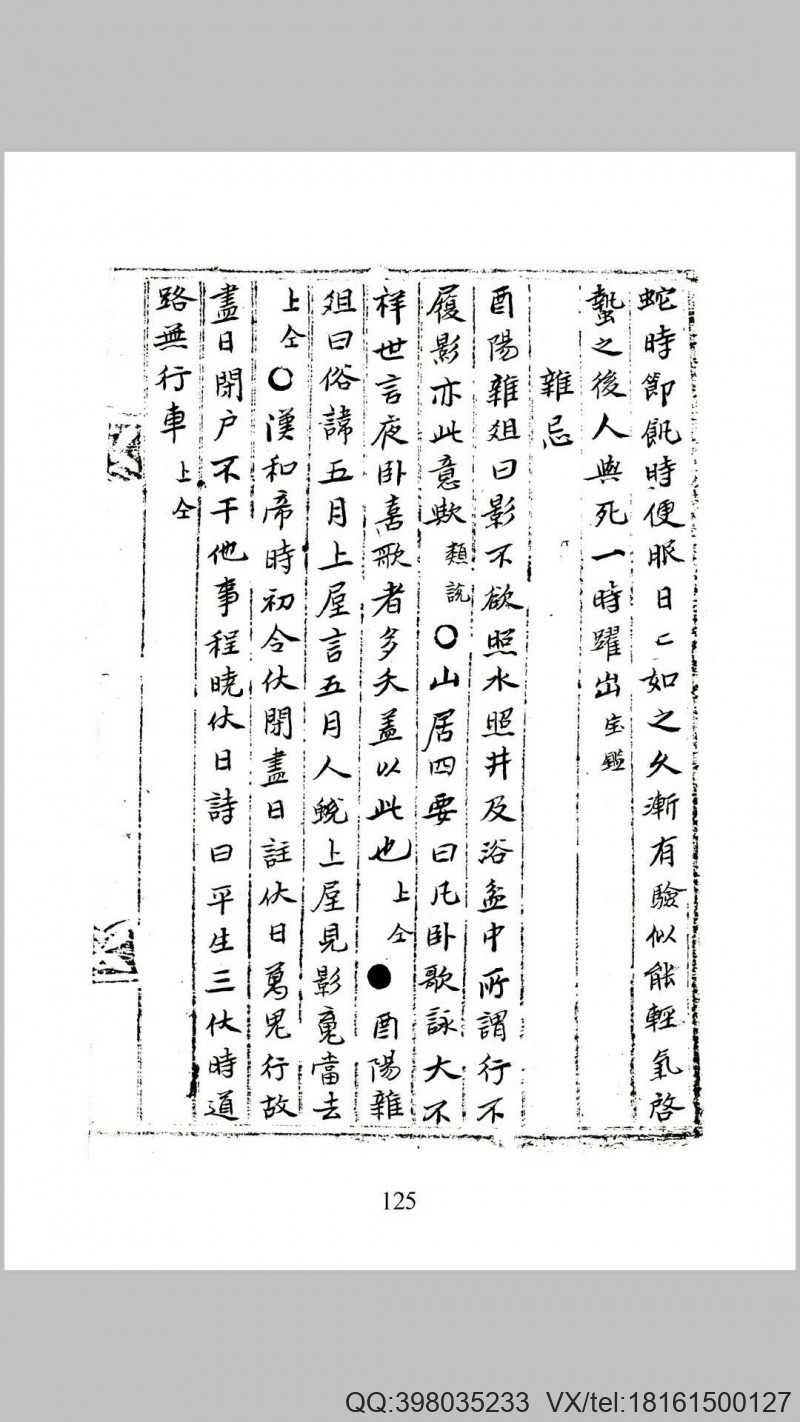 蛇時節飢時便眼日〻如之久漸有驗似能輕氣啓
蟄之後人與死一時躍出宝鑑
雜忌
酉陽雜俎曰影不欲照水照井及浴盆中所謂行不
履影亦此意歟類說〇山居四要曰凡卧歌詠大不
祥世言夜卧喜歌者多夭盖以此也上仝●酉陽雜
俎曰俗諱五月上屋言五月人蛻上屋見影竟當去
上仝〇漢和帝時初令伏閉盡日註伏日萬鬼行故
盡日閉户不干他事程曉伏日詩曰平生三伏時道
路無行車上仝
125
QQ:398035233 VX/tel:18161500127